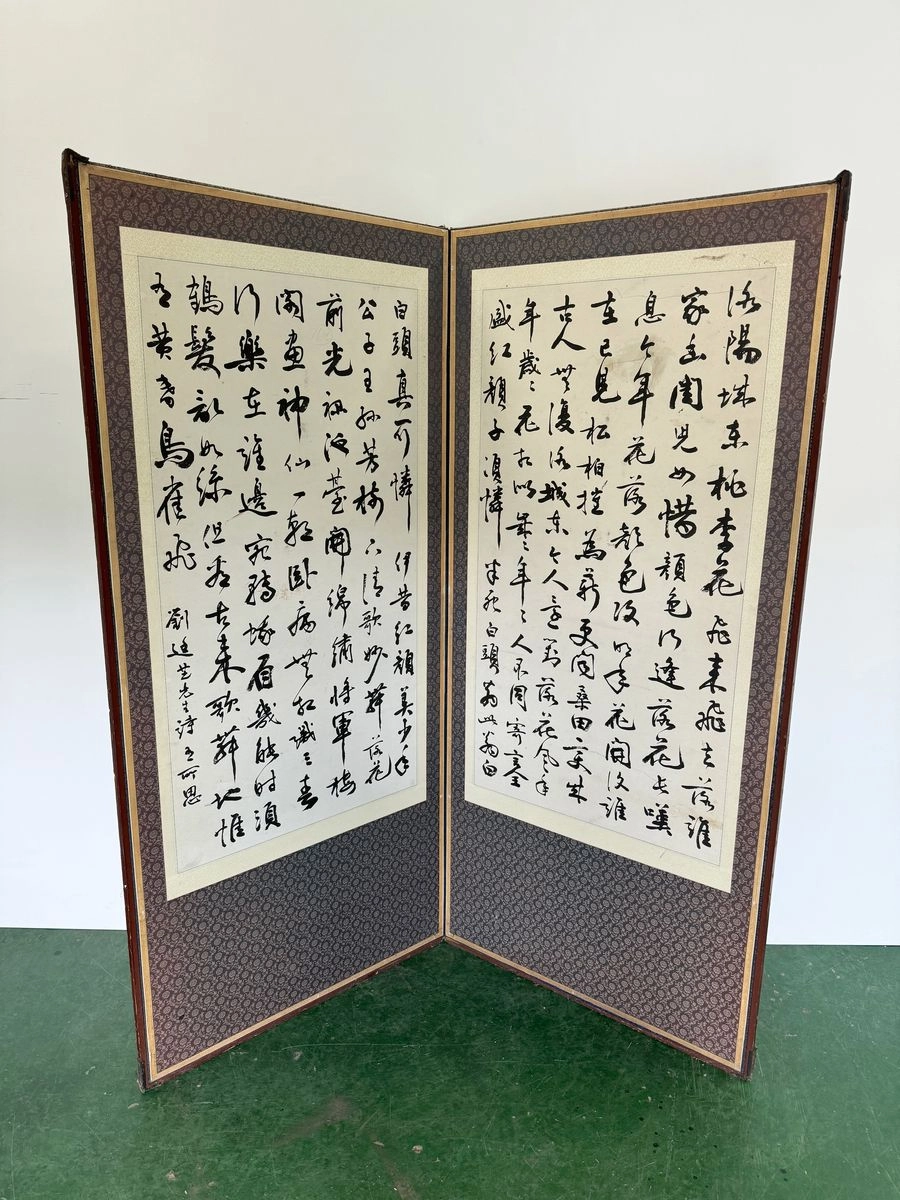 洛陽城東桃李花飛來飛去落誰
家幽閨兒女惜顏色行逢落花長嘆
息今年花落顏色改明年花開復誰
在已見松柏摧為薪更聞桑田変成
古人無復洛城東今人還對落花風年
年歲々花相似歲々年々人不同寄言全
盛紅顏子須憐半死白頭翁此翁白
白頭真可憐伊昔紅顏美少年
公子王孫芳樹下清歌妙舞落花
前光祿池臺開綿繡將軍樓
閣畫神仙一朝臥病無相識三春
行樂在誰邊宛轉蛾眉幾能時須
鶴髮亂如絲但看古來歌舞地惟
有黃昏鳥雀飛 劉廷芝先生詩有所思